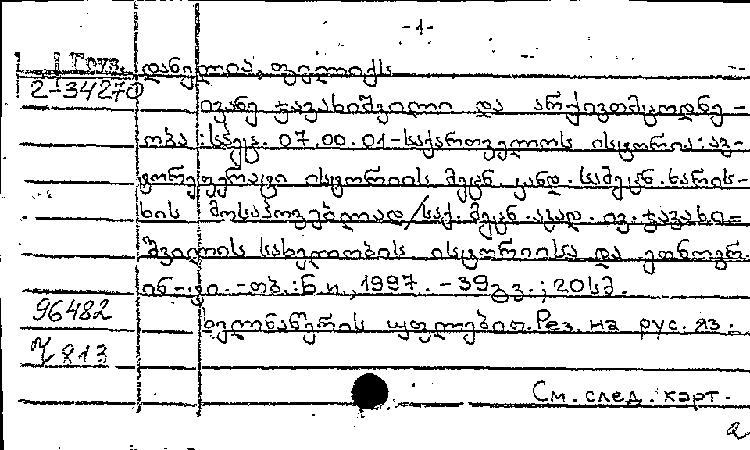 -1-
Груз. დანელია, ფელიქს
2-34270
ივანე ჯავახიშვილი და არქივთმცოდნე-
ობა : სპეც. 07.00.01-საქართველოს ისტორია : ავ-
ტორეფერატი ისტორიის მეცნ. კანდ. სამეცნ. ხარის-
ხის მოსაპოვებლად/საქ. მეცნ. აკად. ივ. ჯავახი=
შვილის სახელობის ისტორიისა და ეთნოგრ.
ინ-ტი. -თბ. : Б.и., 1997. - 39გვ. ; 20სმ.
96482
ხელნაწერის უფლებით. Рез. на рус. яз.
813
См. след. карт.